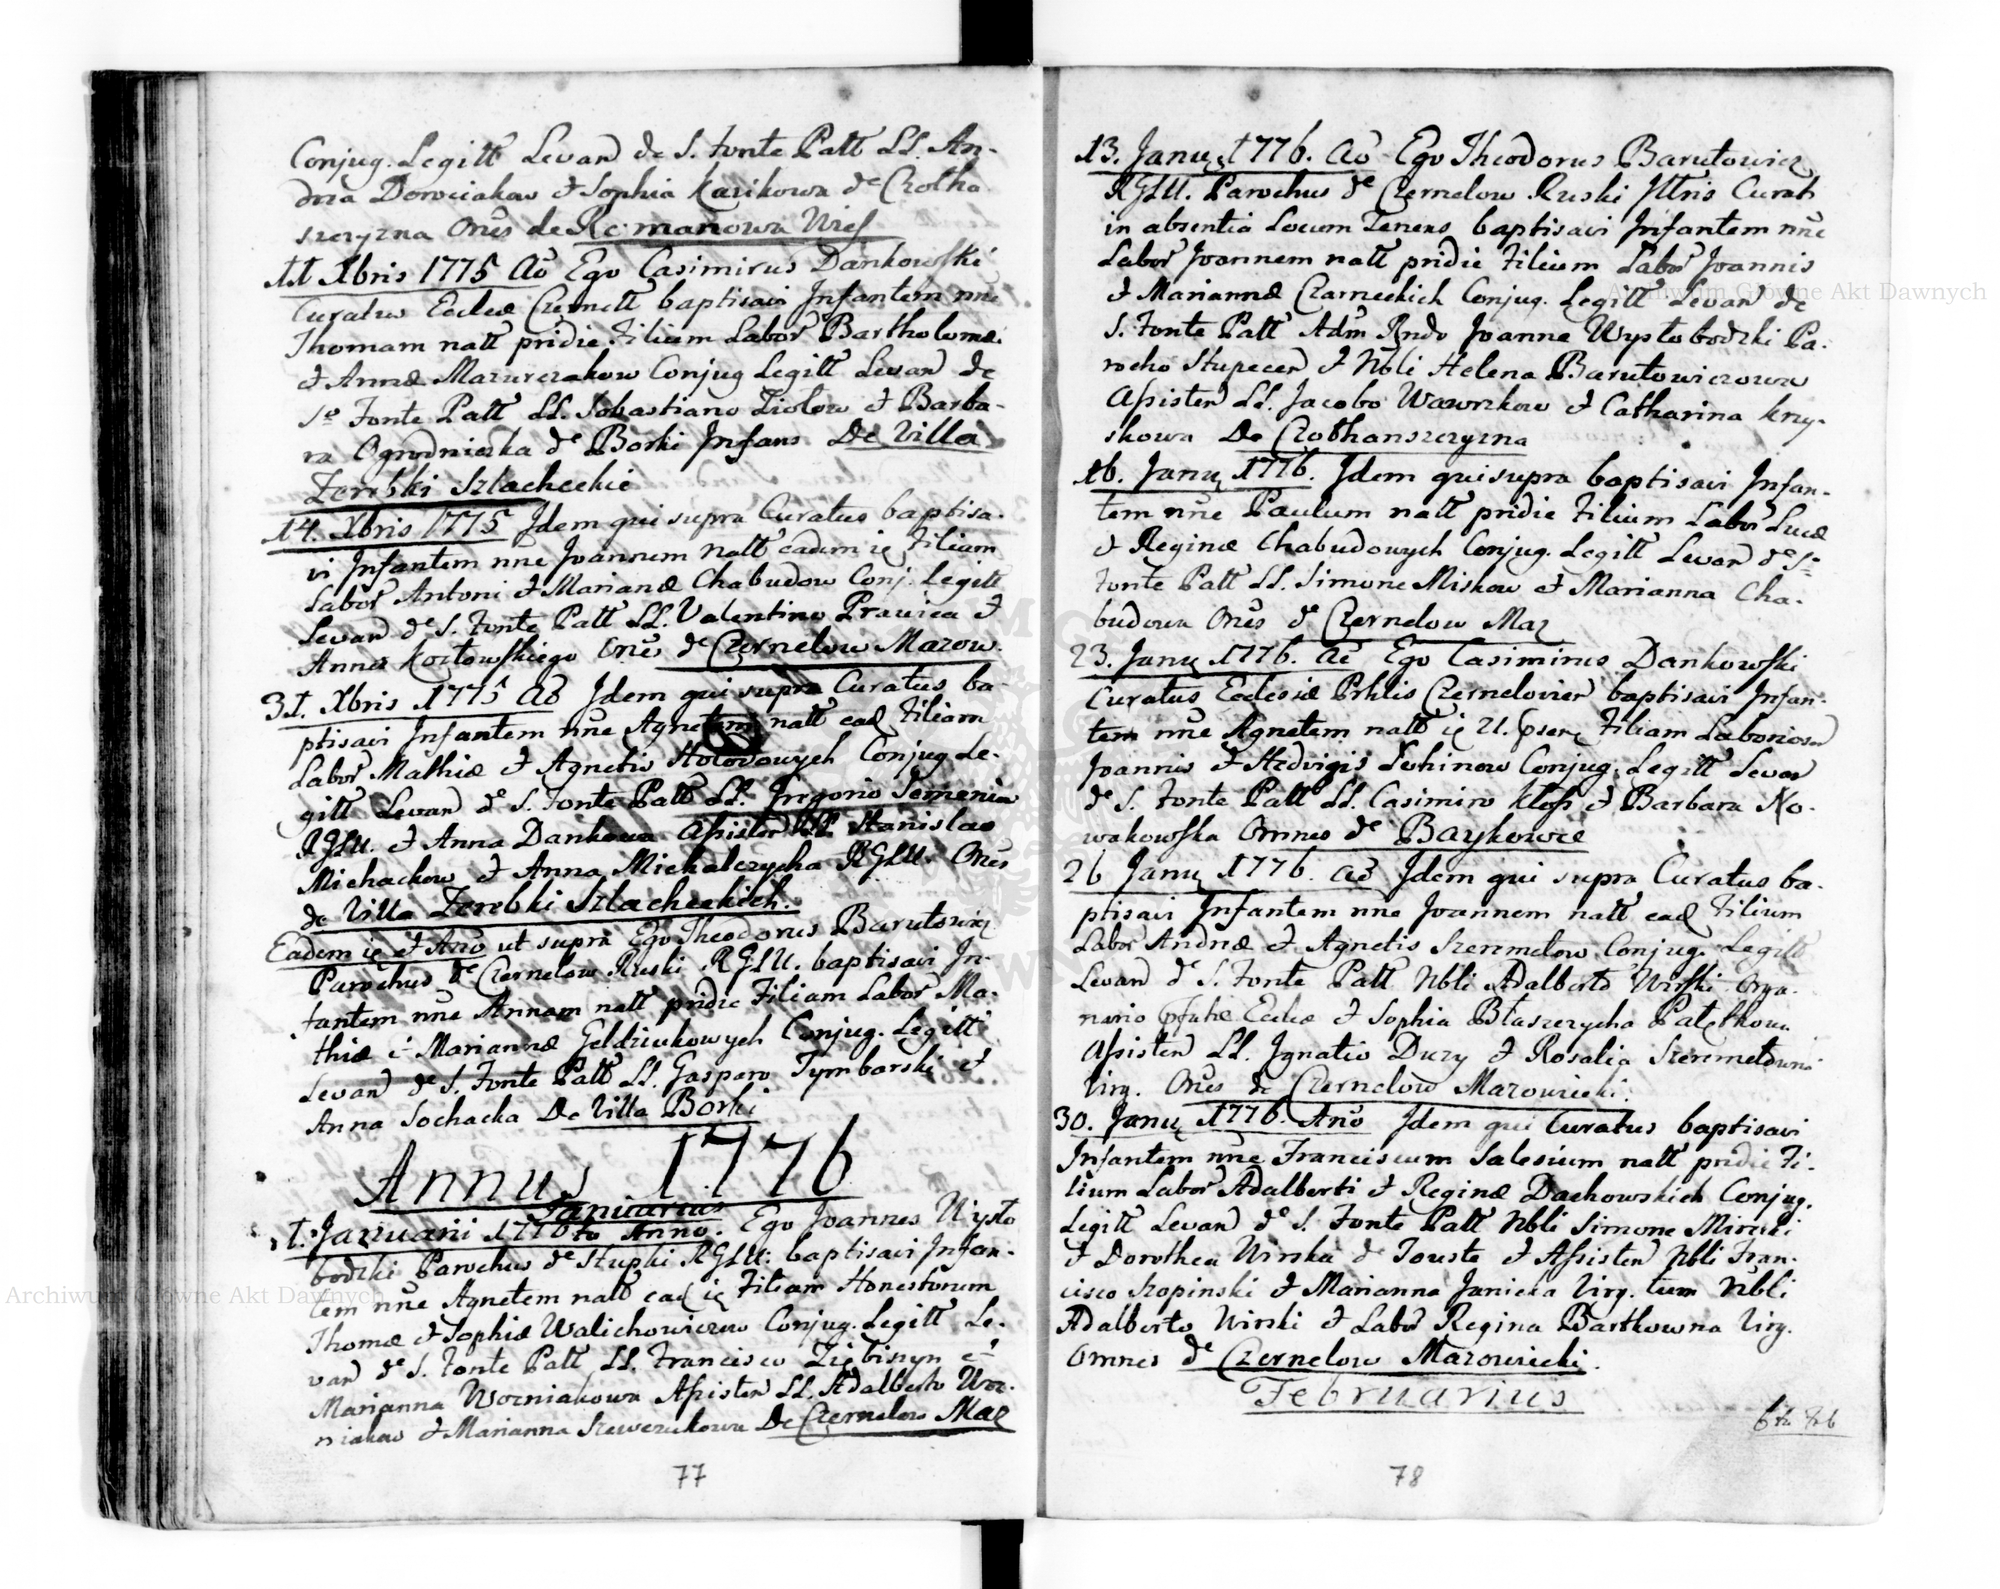 Conjug. Legitt Levan de S. Fonte Patt LL. An-
drea Dorociakow et Sophia Kazikowa de Czolha
szczyzna Ones de Romanowa Vies
11 Xbris 1775 Ao Ego Casimirus Dankowski
Curatus Eccleæ Czernell baptisavi Infantem nne
Thomam natt pridie Filium Labor Bartholomæi
et Annæ Mazurczakow Conjug Legitt Levan de
So Fonte Patt LL. Sebastiano Ziolow et Barba-
ra Ogrodniczka de Borki Infans De Villa
Zerebki Szlacheckie
14. Xbris 1775 Idem qui supra Curatus baptisa-
vi Infantem nne Joannem natt eadem ie Filium
Labor Antoni et Marianæ Chabudow Conj. Legitt
Levan de S. Fonte Patt LL. Valentino Prawica et
Anna Kozlowskiego Ones de Czernelow Mazow.
31. Xbris 1775 Ao Idem qui supra Curatus ba-
ptisavi Infantem nne Agnetem natt ead Filiam
Labor Mathiæ et Agnetis Conjug Le-
gitt Levan de S. Fonte Patt LL. Gregorio Semenia
RGLU. et Anna Dankowa Assisten LL. Stanislao
Michackow et Anna Michalczycha RGLU. Ones
de Villa Zerebki Szlacheckich.
Eadem ie et Ano ut supra Ego Theodorus Barutowicz
Parochus de Czernelow Ruski RGLU. baptisavi In-
fantem nne Annam natt pridie Filiam Labor Ma-
thiæ et Mariannæ Geldziukowych Conjug. Legitt
Levan de S. Fonte Patt LL. Gasparo Tymbarski et
Anna Sochacka De Villa Borki
Annus 1776
Januarius
1. Januarii 1776to Anno. Ego Joannes Wysto
bodzki Parochus de Stupki RGLU: baptisavi Infan-
tem nne Agnetem natt ead ie Filiam Honestorum
Thomæ et Sophiæ Walichowiczow Conjug. Legitt Le-
van de S. Fonte Patt LL. Francisco Ziębiszyn et
Marianna Wozniakowa Assisten LL. Adalberto Woz-
niakow et Marianna Szewczukowa De Czernelow Maz
77
13. Janu 1776. Ao Ego Theodorus Barutowicz
RGLU. Parochus de Czernelow Ruski Illris Curati
in absentia Locum Tenens baptisavi Infantem nne
Labor Joannem natt pridie Filium Labor Joannis
et Mariannæ Czarneckich Conjug. Legitt Levan de
S. Fonte Patt Adm Rndo Joanne Wystobodzki Pa-
rocho Stupecen et Nbli Helena Barutowiczowa
Assisten LL. Jacobo Wawrzkow et Catharina Kry-
skowa De Czolhanszczyzna
16. Janu 1776. Idem qui supra baptisavi Infan-
tem nne Paulum natt pridie Filium Labor Lucæ
et Reginæ Chabudowych Conjug. Legitt Levan de So
Fonte Patt LL. Simone Miskow et Marianna Cha-
budowa Ones de Czernelow Maz
23. Janu 1776. Ao Ego Casimirus Dankowski
Curatus Ecclesiæ Prhlis Czernelovien baptisavi Infan-
tem nne Agnetem natt ie 21. psen Filiam Laborioso
Joannis et Hedvigis Lechinow Conjug. Legitt Levan
de S. Fonte Patt LL. Casimiro Kless et Barbara No-
wakowska Omnes de Baykowce
26 Janu 1776. Ao Idem qui supra Curatus ba-
ptisavi Infantem nne Joannem natt ead Filium
Labor Andræ et Agnetis Szenmelow Conjug. Legitt
Levan de S. Fonte Patt Nbli Adalberto Wirski Orga-
nario pfatæ Eccliæ et Sophia Błaszczycha Pałętkowa
Assisten LL. Ignatio Duzy et Rosalia Szenmelowna
Virg. Ones de Czernelow Mazowiecki.
30. Janu 1776. Ano Idem qui Curatus baptisavi
Infantem nne Franciscum Salesium natt pridie Fi-
lium Labor Adalberti et Reginæ Dachowskich Conjug.
Legitt Levan de S. Fonte Patt Nbli Simone Mirecki
et Dorothea Wirska de Touste et Assisten Nbli Fran-
cisco Szopinski et Marianna Janicka Virg. tum Nbli
Adalberto Wirski et Labor Regina Bartkowna Virg.
Omnes de Czernelow Mazowiecki.
Februarius
6ta Feb
78
Archiwum Główne Akt Dawnych
Archiwum Główne Akt Dawnych